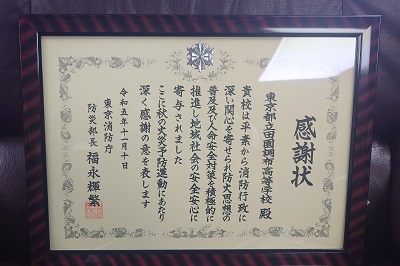 感謝状
東京都立田園調布高等学校 殿
貴校は平素から消防行政に
深い関心を寄せられ防火思想の
普及及び人命安全対策を積極的に
推進し地域社会の安全安心に
寄与されました
ここに秋の火災予防運動にあたり
深く感謝の意を表します
令和五年十一月十日
東京消防庁
防災部長 福永輝繁